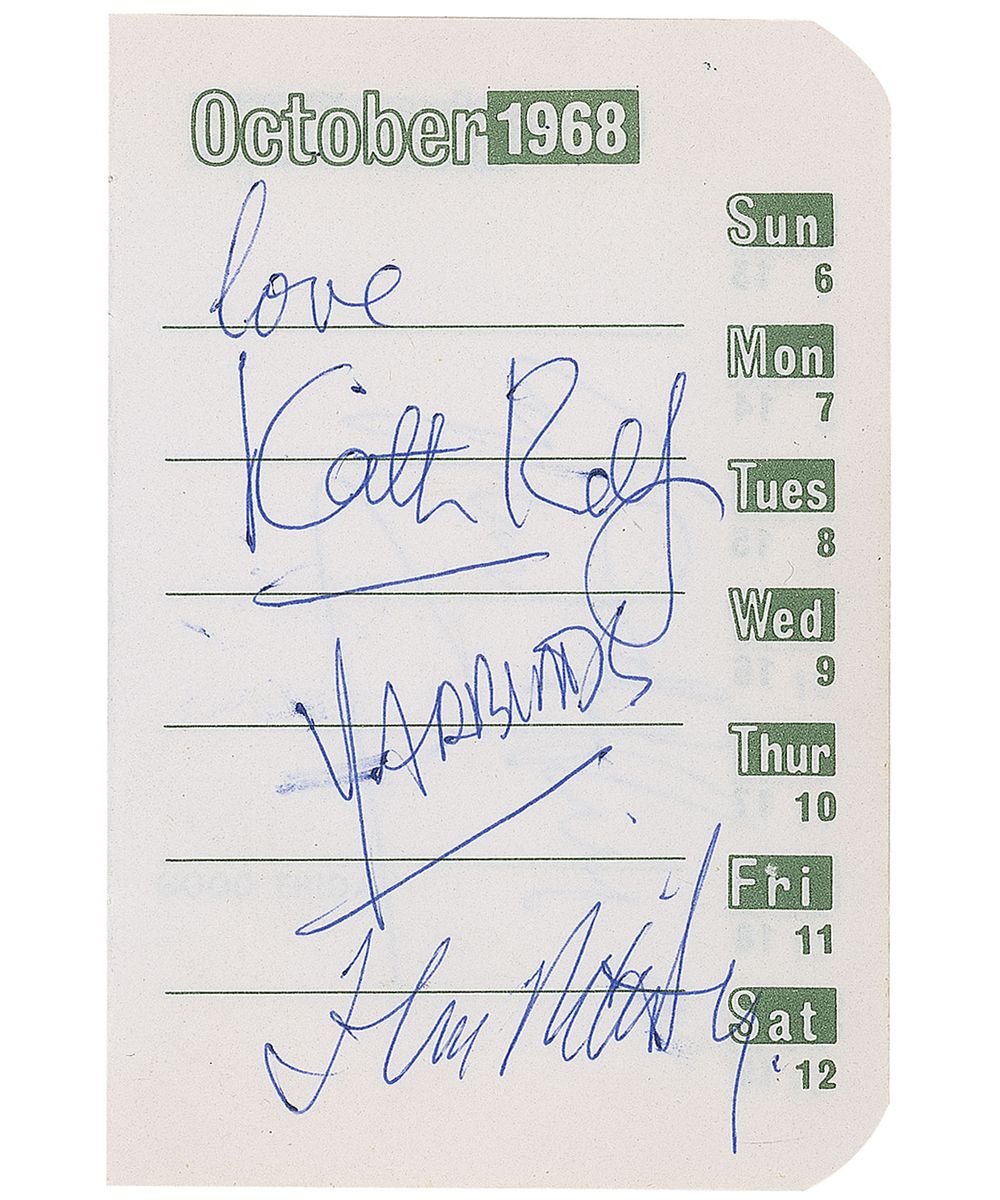 October 1968
love
Sun
6
Keith Relf
Mon
7
Tues
8
YARDBIRDS
Wed
9
Thur
10
Fri
11
Jim McCarty
Sat
12